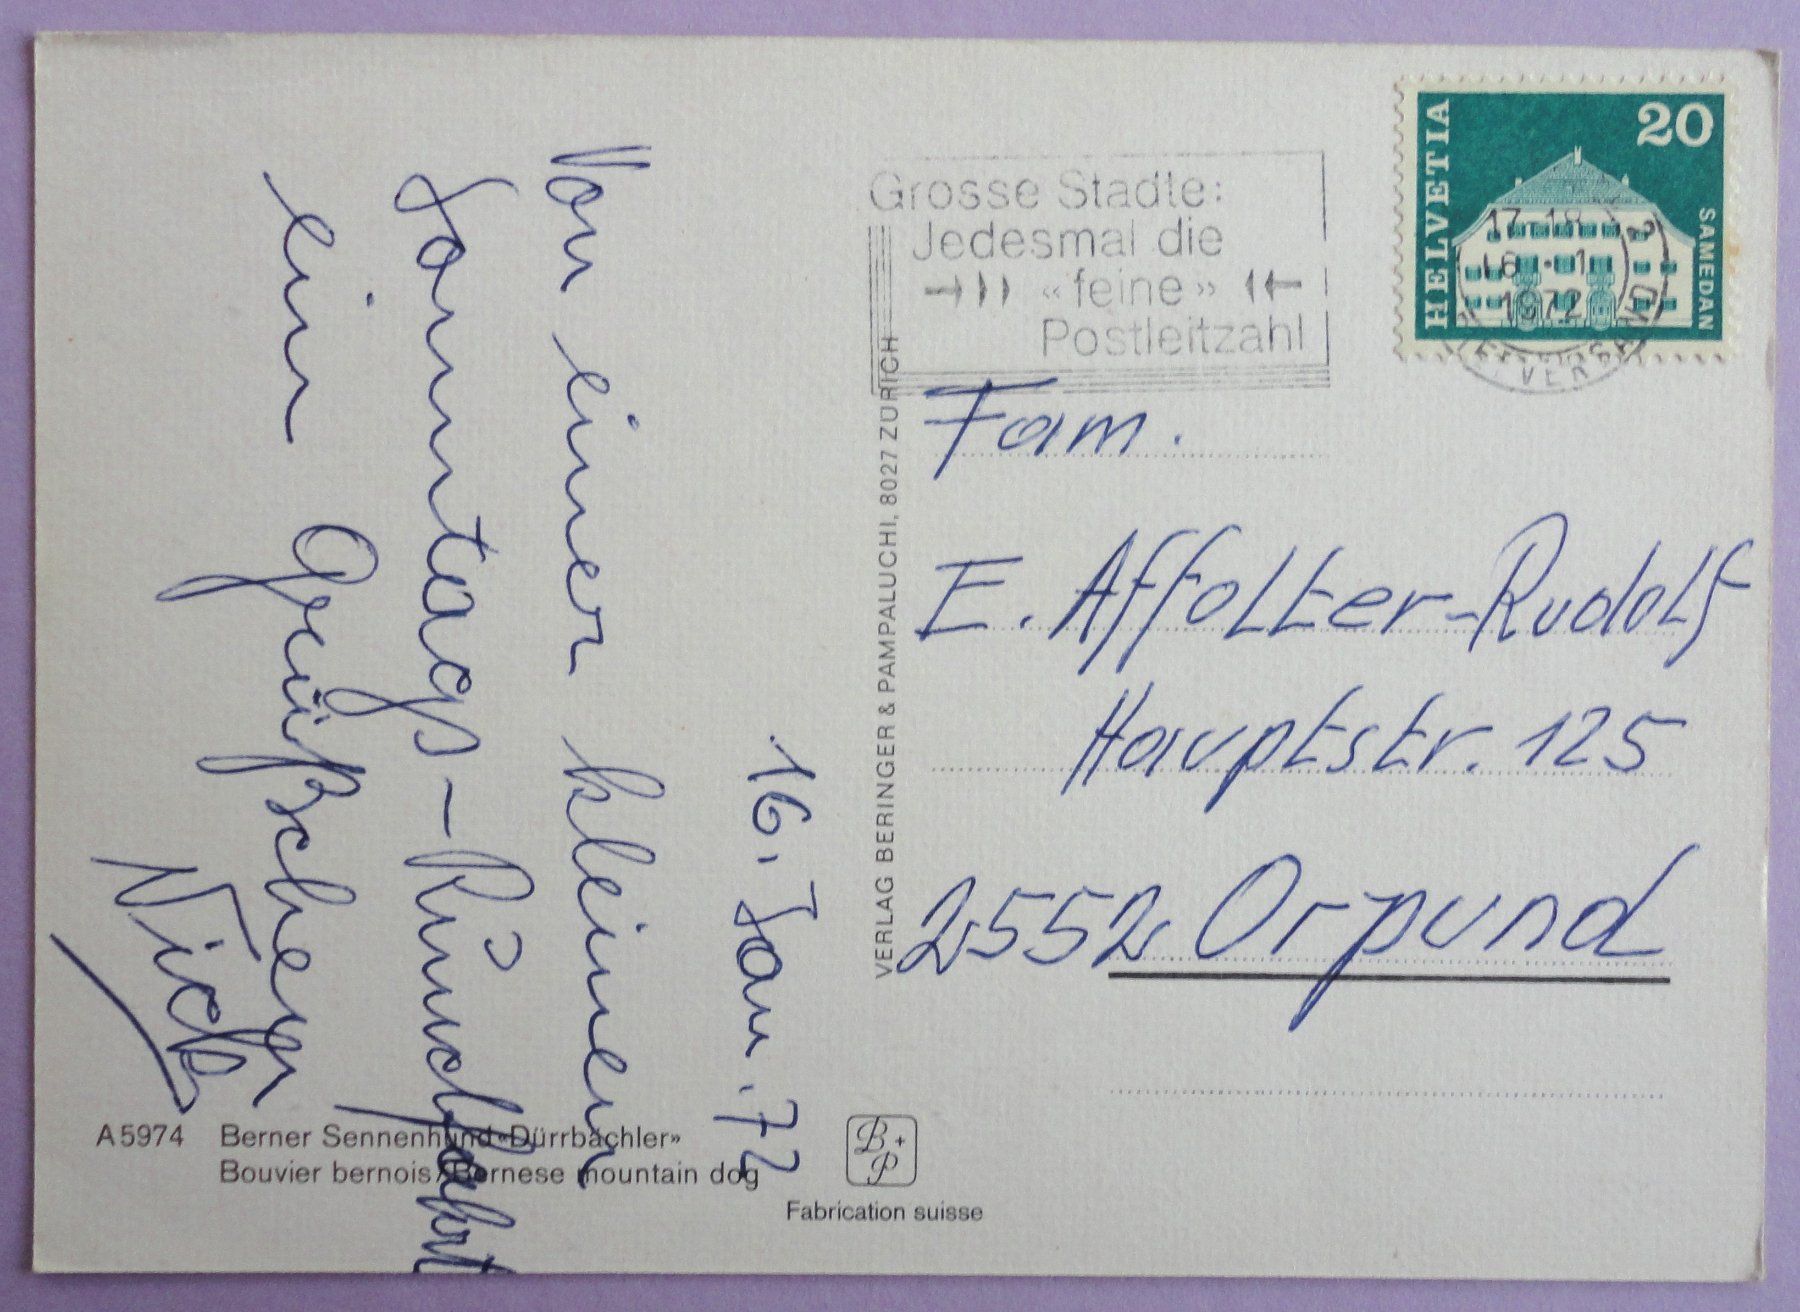 16. Jan. 72
Von einer kleinen
Sonntags-Rundfahrt
ein Grüßchen
Nick
A5974 Berner Sennenhund «Dürrbächler»
Bouvier bernois / Bernese mountain dog
B+P
Fabrication suisse
VERLAG BERINGER & PAMPALUCHI, 8027 ZÜRICH
Grosse Städte:
Jedesmal die
«feine»
Postleitzahl
HELVETIA
20
SAMEDAN
17-18
16.-1.
1972
Fam.
E. Affolter-Rudolf
Hauptstr. 125
2552 Orpund